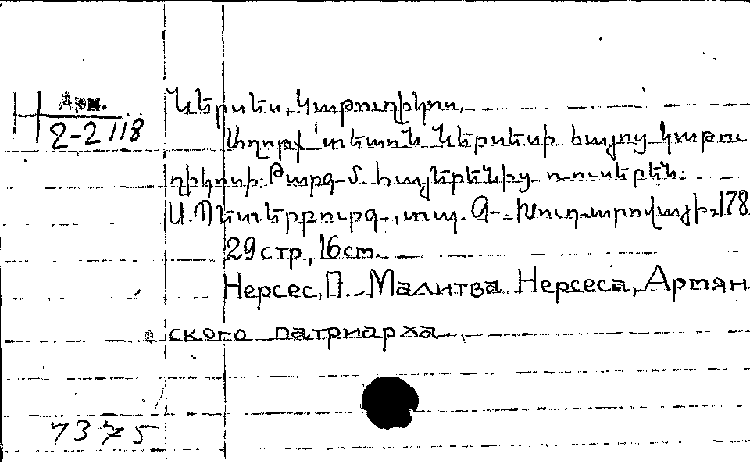 Арм.
2-2118
Ներսես, Կաթուղիկոս.
Աղոթք տեառն Ներսեսի հայոց կաթու
ղիկոսի. Թարգ-ծ. հայերենից ռուսերեն.
Ս. Պետերբուրգ-, տպ. Գ-. Խուդարովյացի, 178
29 стр., 16 cm.
Нерсес, П. Малитва Нерсеса, Армян
ского патриарха
7375